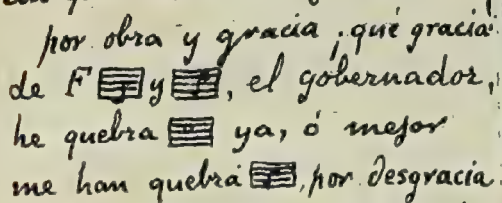 por obra y gracia, ¡qué gracia!
de F y , el gobernador,
he quebra ya, ó mejor
me han quebrá , por desgracia